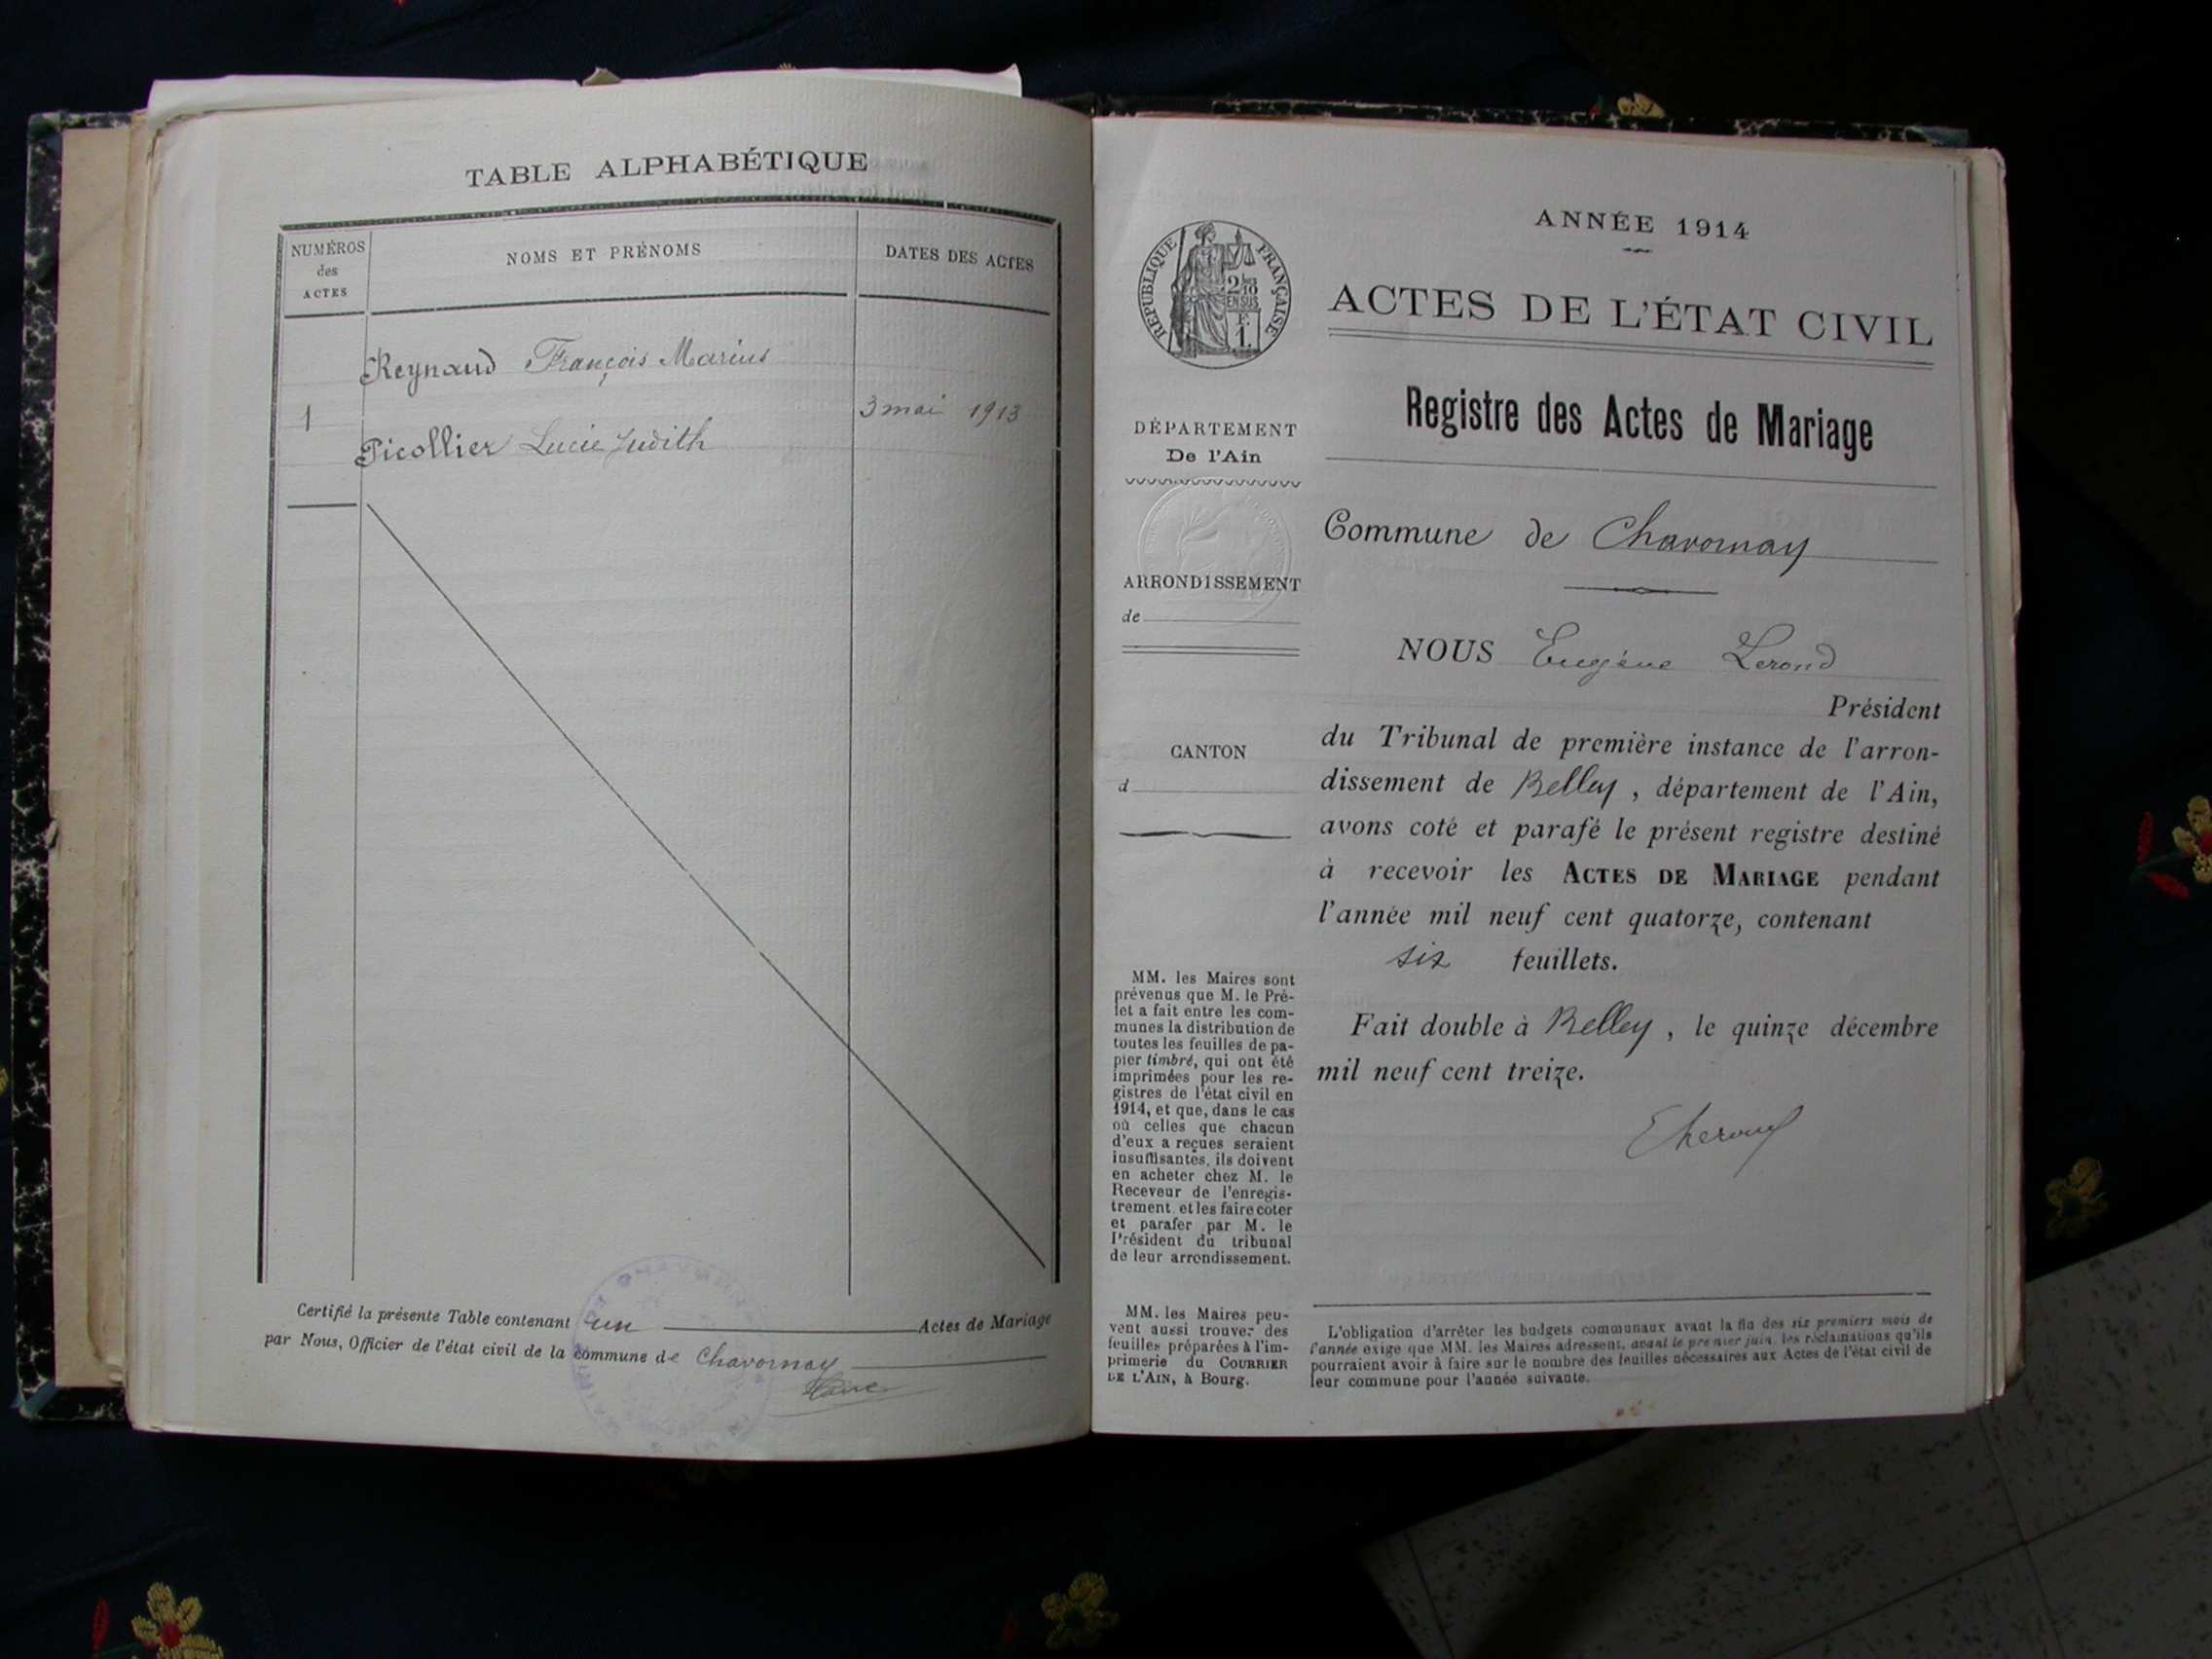 TABLE ALPHABÉTIQUE
NUMÉROS
des
ACTES
NOMS ET PRÉNOMS
DATES DES ACTES
Reynaud François Marius
1
3 mai 1913
Picollier Lucie Judith
Certifié la présente Table contenant un Actes de Mariage
par Nous, Officier de l'état civil de la commune de Chavornay
ANNÉE 1914
RÉPUBLIQUE FRANÇAISE
2/10
EN SUS
F.
1.
ACTES DE L'ÉTAT CIVIL
Registre des Actes de Mariage
DÉPARTEMENT
De l'Ain
Commune de Chavornay
ARRONDISSEMENT
de
NOUS Eugène Lerond
Président
du Tribunal de première instance de l'arron-
dissement de Belley, département de l'Ain,
avons coté et parafé le présent registre destiné
à recevoir les ACTES DE MARIAGE pendant
l'année mil neuf cent quatorze, contenant
six feuillets.
Fait double à Belley, le quinze décembre
mil neuf cent treize.
CANTON
d
MM. les Maires sont
prévenus que M. le Pré-
fet a fait entre les com-
munes la distribution de
toutes les feuilles de pa-
pier timbré, qui ont été
imprimées pour les re-
gistres de l'état civil en
1914, et que, dans le cas
où celles que chacun
d'eux a reçues seraient
insuffisantes, ils doivent
en acheter chez M. le
Receveur de l'enregis-
trement et les faire coter
et parafer par M. le
Président du tribunal
de leur arrondissement.
MM. les Maires peu-
vent aussi trouver des
feuilles préparées à l'im-
primerie du COURRIER
DE L'AIN, à Bourg.
L'obligation d'arrêter les budgets communaux avant la fin des six premiers mois de
l'année exige que MM. les Maires adressent, avant le premier juin, les réclamations qu'ils
pourraient avoir à faire sur le nombre des feuilles nécessaires aux Actes de l'état civil de
leur commune pour l'année suivante.